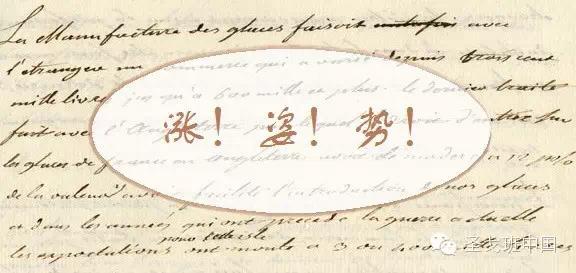 La Manufacture des glaces faisoit autrefois avec
l'etranger un commerce qui a varié depuis trois cent
mille livres jusqu'à 600 mille et plus. le dernier traité
fait avec l'Angleterre par lequel d'entrée sur
涨！姿！势！
les glaces de france en Angleterre 12 p%
de la valeur avoit facilité l'introduction de nos glaces
et dans les années qui ont précédé la guerre actuelle
pour
les exportations ont monté à 3 ou
圣戈班中国